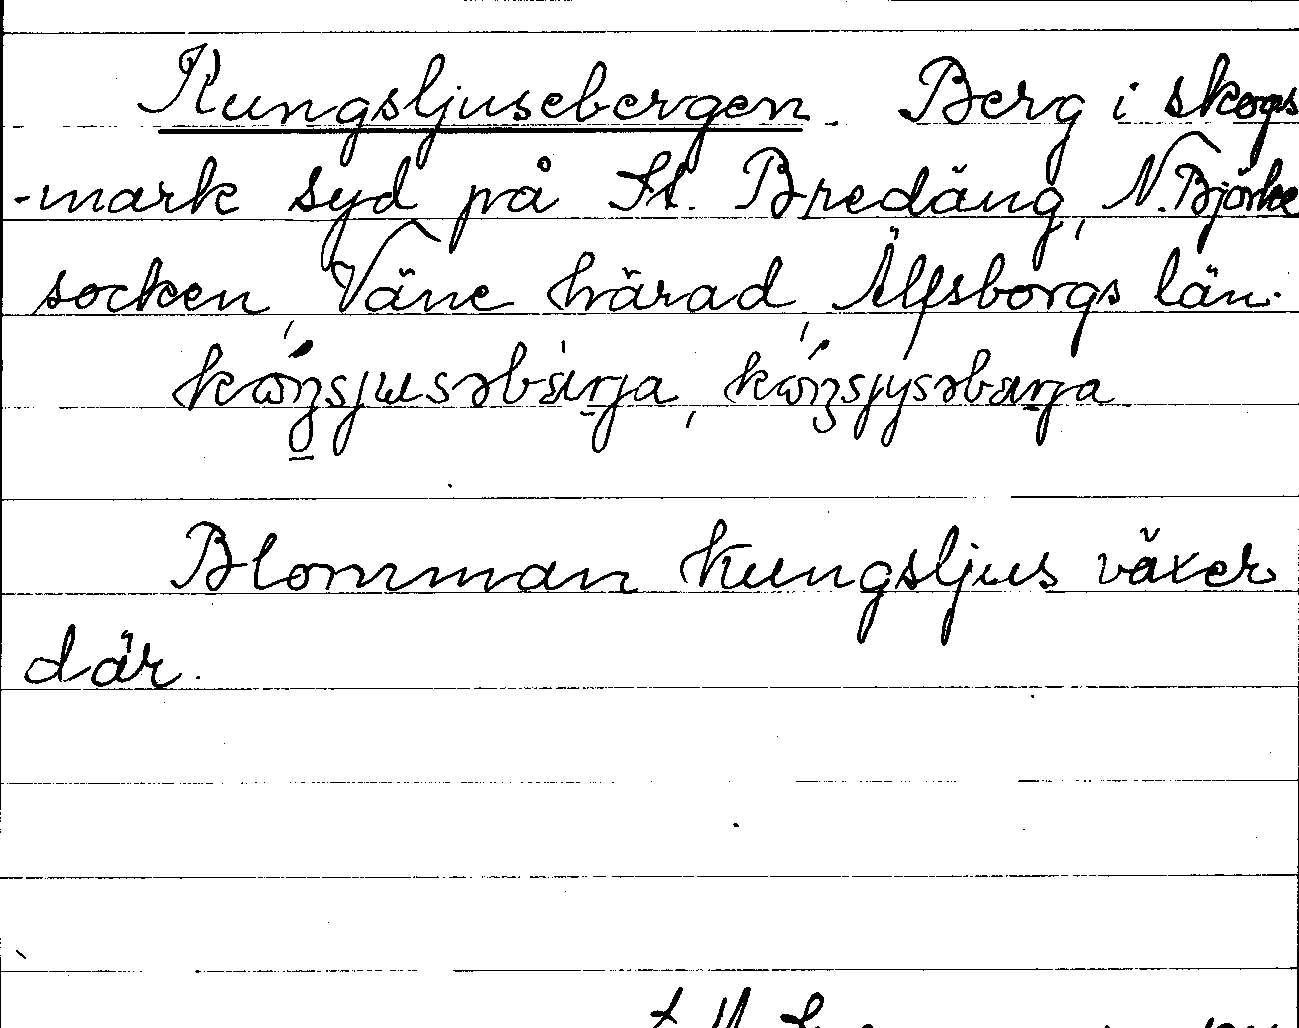 Kungsljusebergen. Berg i skogs
-mark syd på St. Bredäng, N. Björke
socken, Väne härad, Älfsborgs län.
Blomman kungsljus växer
där.